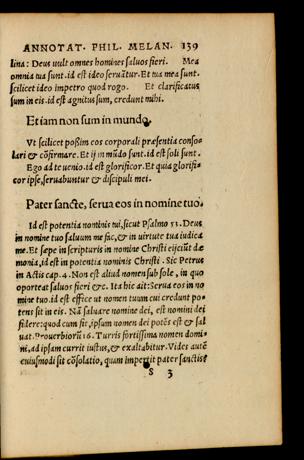 ANNOTAT. PHIL. MELAN. 139
lina: Deus vult omnes homines saluos fieri. Mea
omnia tua sunt. id est ideo seruãtur. Et tua mea sunt.
scilicet ideo impetro quod rogo. Et clarificatus
sum in eis. id est agnitus sum, credunt mihi.
Et iam non sum in mundo.
Vt scilicet possim eos corporali præsentia conso-
lari & cõfirmare. Et ij in mũdo sunt. id est soli sunt.
Ego ad te uenio. id est glorificor. Et qua glorifi-
cor ipse, seruabuntur & discipuli mei.
Pater sancte, serua eos in nomine tuo.
Id est potentia nominis tui, sicut Psalmo 53. Deus
in nomine tuo saluum me fac, & in uirtute tua iudica
me. Et sæpe in scripturis in nomine Christi eijciũt dæ
monia, id est in potentia nominis Christi. Sic Petrus
in Actis cap. 4. Non est aliud nomen sub sole, in quo
oporteat saluos fieri &c. Ita hic ait: Serua eos in no
mine tuo. id est effice ut nomen tuum cui credunt po-
tens sit in eis. Nã saluare nomine dei, est nomini dei
fidere: quod cum fit, ipsum nomen dei potẽs est & sal
uat. Prouerbiorũ 16. Turris fortissima nomen domi-
ni, ad ipsam currit iustus, & exaltabitur. Vides autẽ
euiusmodi sit cõsolatio, quam impertit pater sanctis
S 3